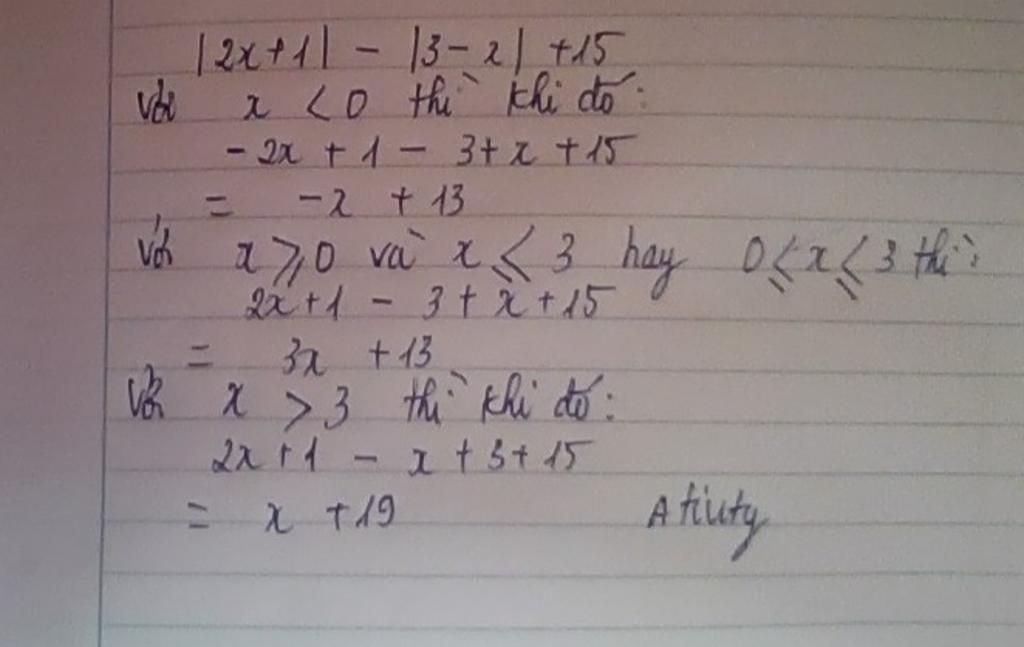 |2x+1| - |3-x| +15
với x < 0 thì khi đó:
-2x + 1 - 3+x +15
= -x + 13
với x ⩾ 0 và x ⩽ 3 hay 0 ⩽ x ⩽ 3 thì:
2x+1 - 3 + x +15
= 3x +13
Với x > 3 thì khi đó:
2x+1 - x + 3+15
= x +19 Atiuty